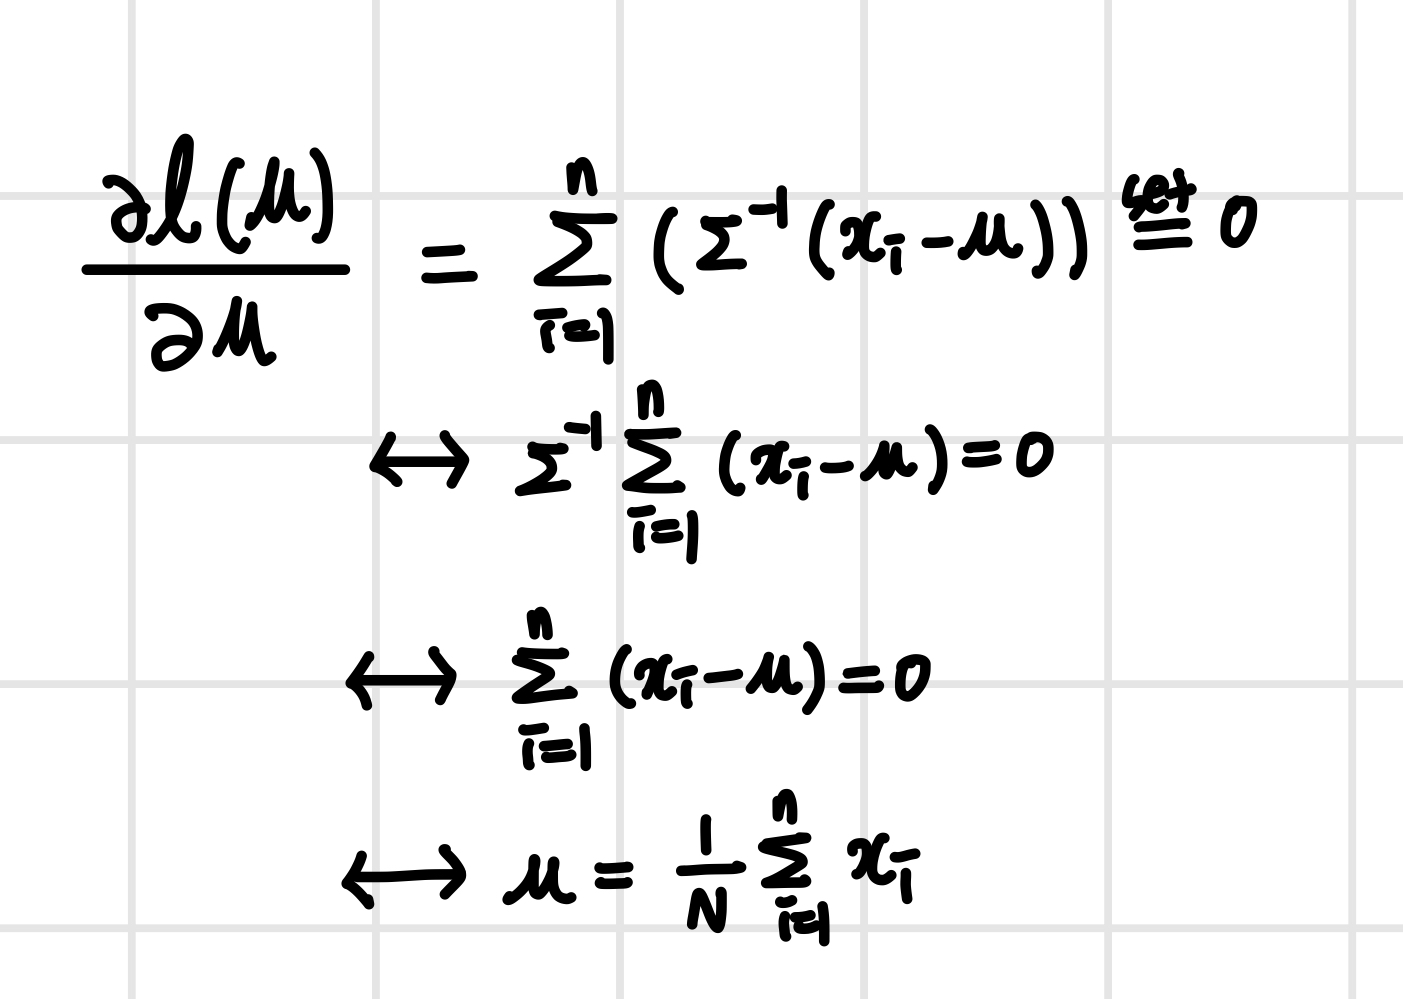 ∂l(μ)/∂μ = ∑_{i=1}^{n} (Σ^{-1}(x_i - μ)) \overset{set}{=} 0
↔ Σ^{-1} ∑_{i=1}^{n} (x_i - μ) = 0
↔ ∑_{i=1}^{n} (x_i - μ) = 0
↔ μ = 1/N ∑_{i=1}^{n} x_i